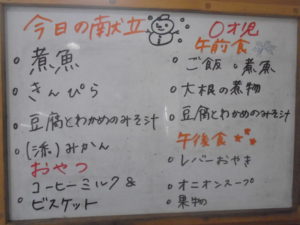 今日の献立
煮魚
きんぴら
豆腐とわかめのみそ汁
(派)みかん
おやつ
コーヒーミルク&
ビスケット
0才児
午前食
ご飯・煮魚
大根の煮物
豆腐とわかめのみそ汁
午後食
レバーおやき
オニオンスープ
果物